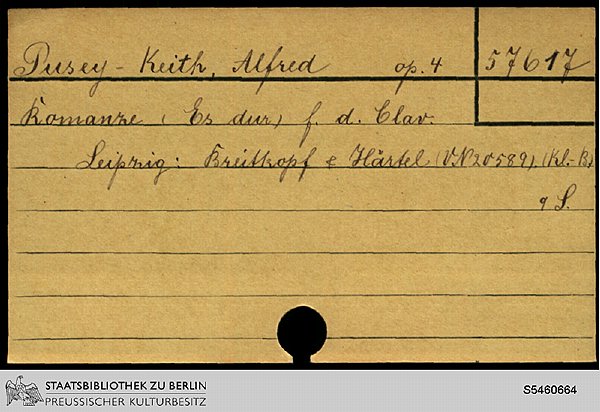 Pusey-Keith, Alfred op. 4 57617
Romanze (Es dur) f. d. Clav.
Leipzig: Breitkopf & Härtel (V.N. 20589) (Kl-B)
9 S.
STAATSBIBLIOTHEK ZU BERLIN
PREUSSISCHER KULTURBESITZ
S5460664